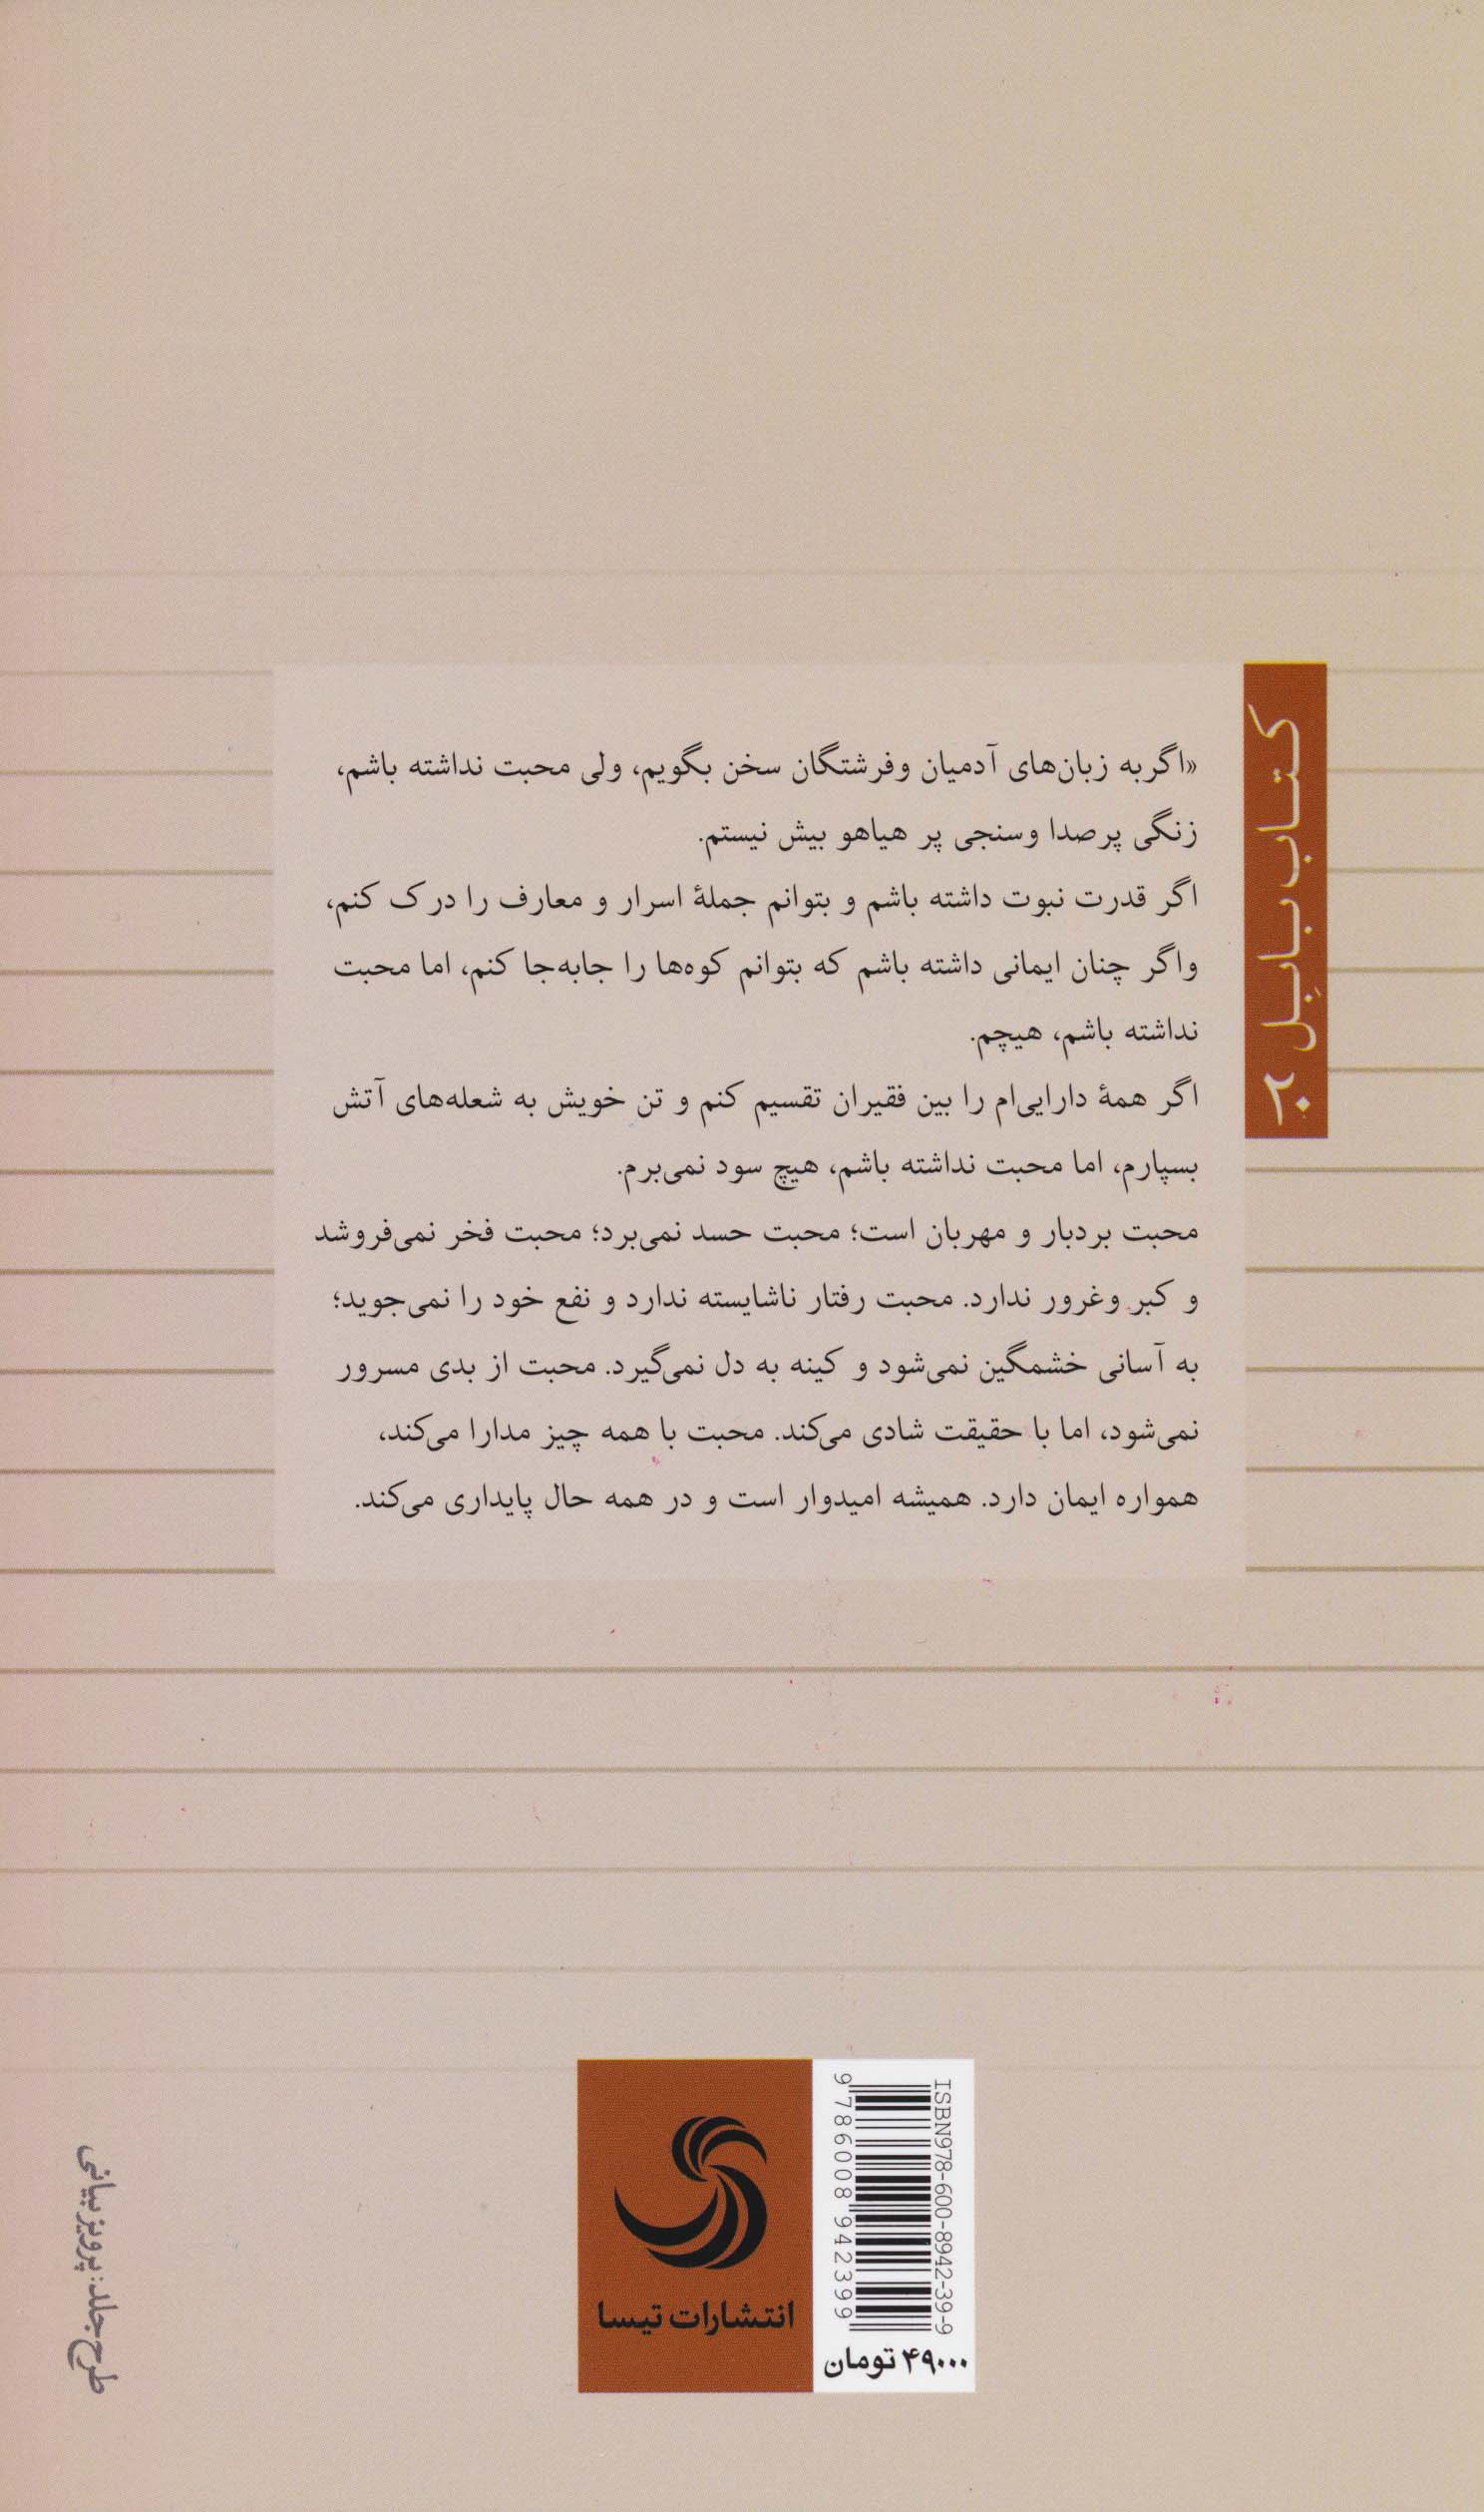 «اگر به زبان‌های آدمیان وفرشتگان سخن بگویم، ولی محبت نداشته باشم،
زنگی پرصدا وسنجی پر هیاهو بیش نیستم.
اگر قدرت نبوت داشته باشم و بتوانم جملهٔ اسرار و معارف را درک کنم،
واگر چنان ایمانی داشته باشم که بتوانم کوه‌ها را جابه‌جا کنم، اما محبت
نداشته باشم، هیچم.
اگر همهٔ دارایی‌ام را بین فقیران تقسیم کنم و تن خویش به شعله‌های آتش
بسپارم، اما محبت نداشته باشم، هیچ سود نمی‌برم.
محبت بردبار و مهربان است؛ محبت حسد نمی‌برد؛ محبت فخر نمی‌فروشد
و کبر وغرور ندارد. محبت رفتار ناشایسته ندارد و نفع خود را نمی‌جوید؛
به آسانی خشمگین نمی‌شود و کینه به دل نمی‌گیرد. محبت از بدی مسرور
نمی‌شود، اما با حقیقت شادی می‌کند. محبت با همه چیز مدارا می‌کند،
همواره ایمان دارد. همیشه امیدوار است و در همه حال پایداری می‌کند.
کتاب بابِل
ISBN978-600-8942-39-9
9 786008 942399
۴۹۰۰۰ تومان
انتشارات تیسا
طرح جلد: پرویز بیانی